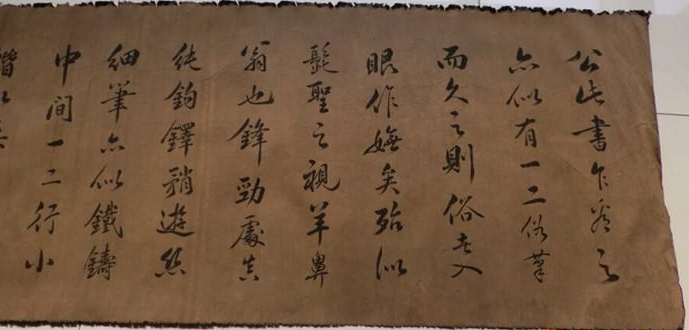 公此書乍看之
亦似有一二俗筆
而久之則俗者入
眼作嫵矣殆似
髭聖之視羊鼻
翁也鋒勁處真
純鉤鐸矟遊絲
細筆亦似鐵鑄
中間一二行小